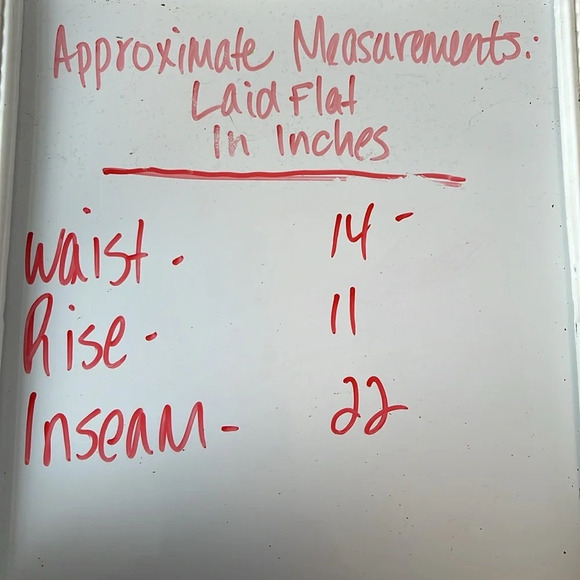 Approximate Measurements:
Laid Flat
In Inches
Waist - 14 -
Rise - 11
Inseam - 22